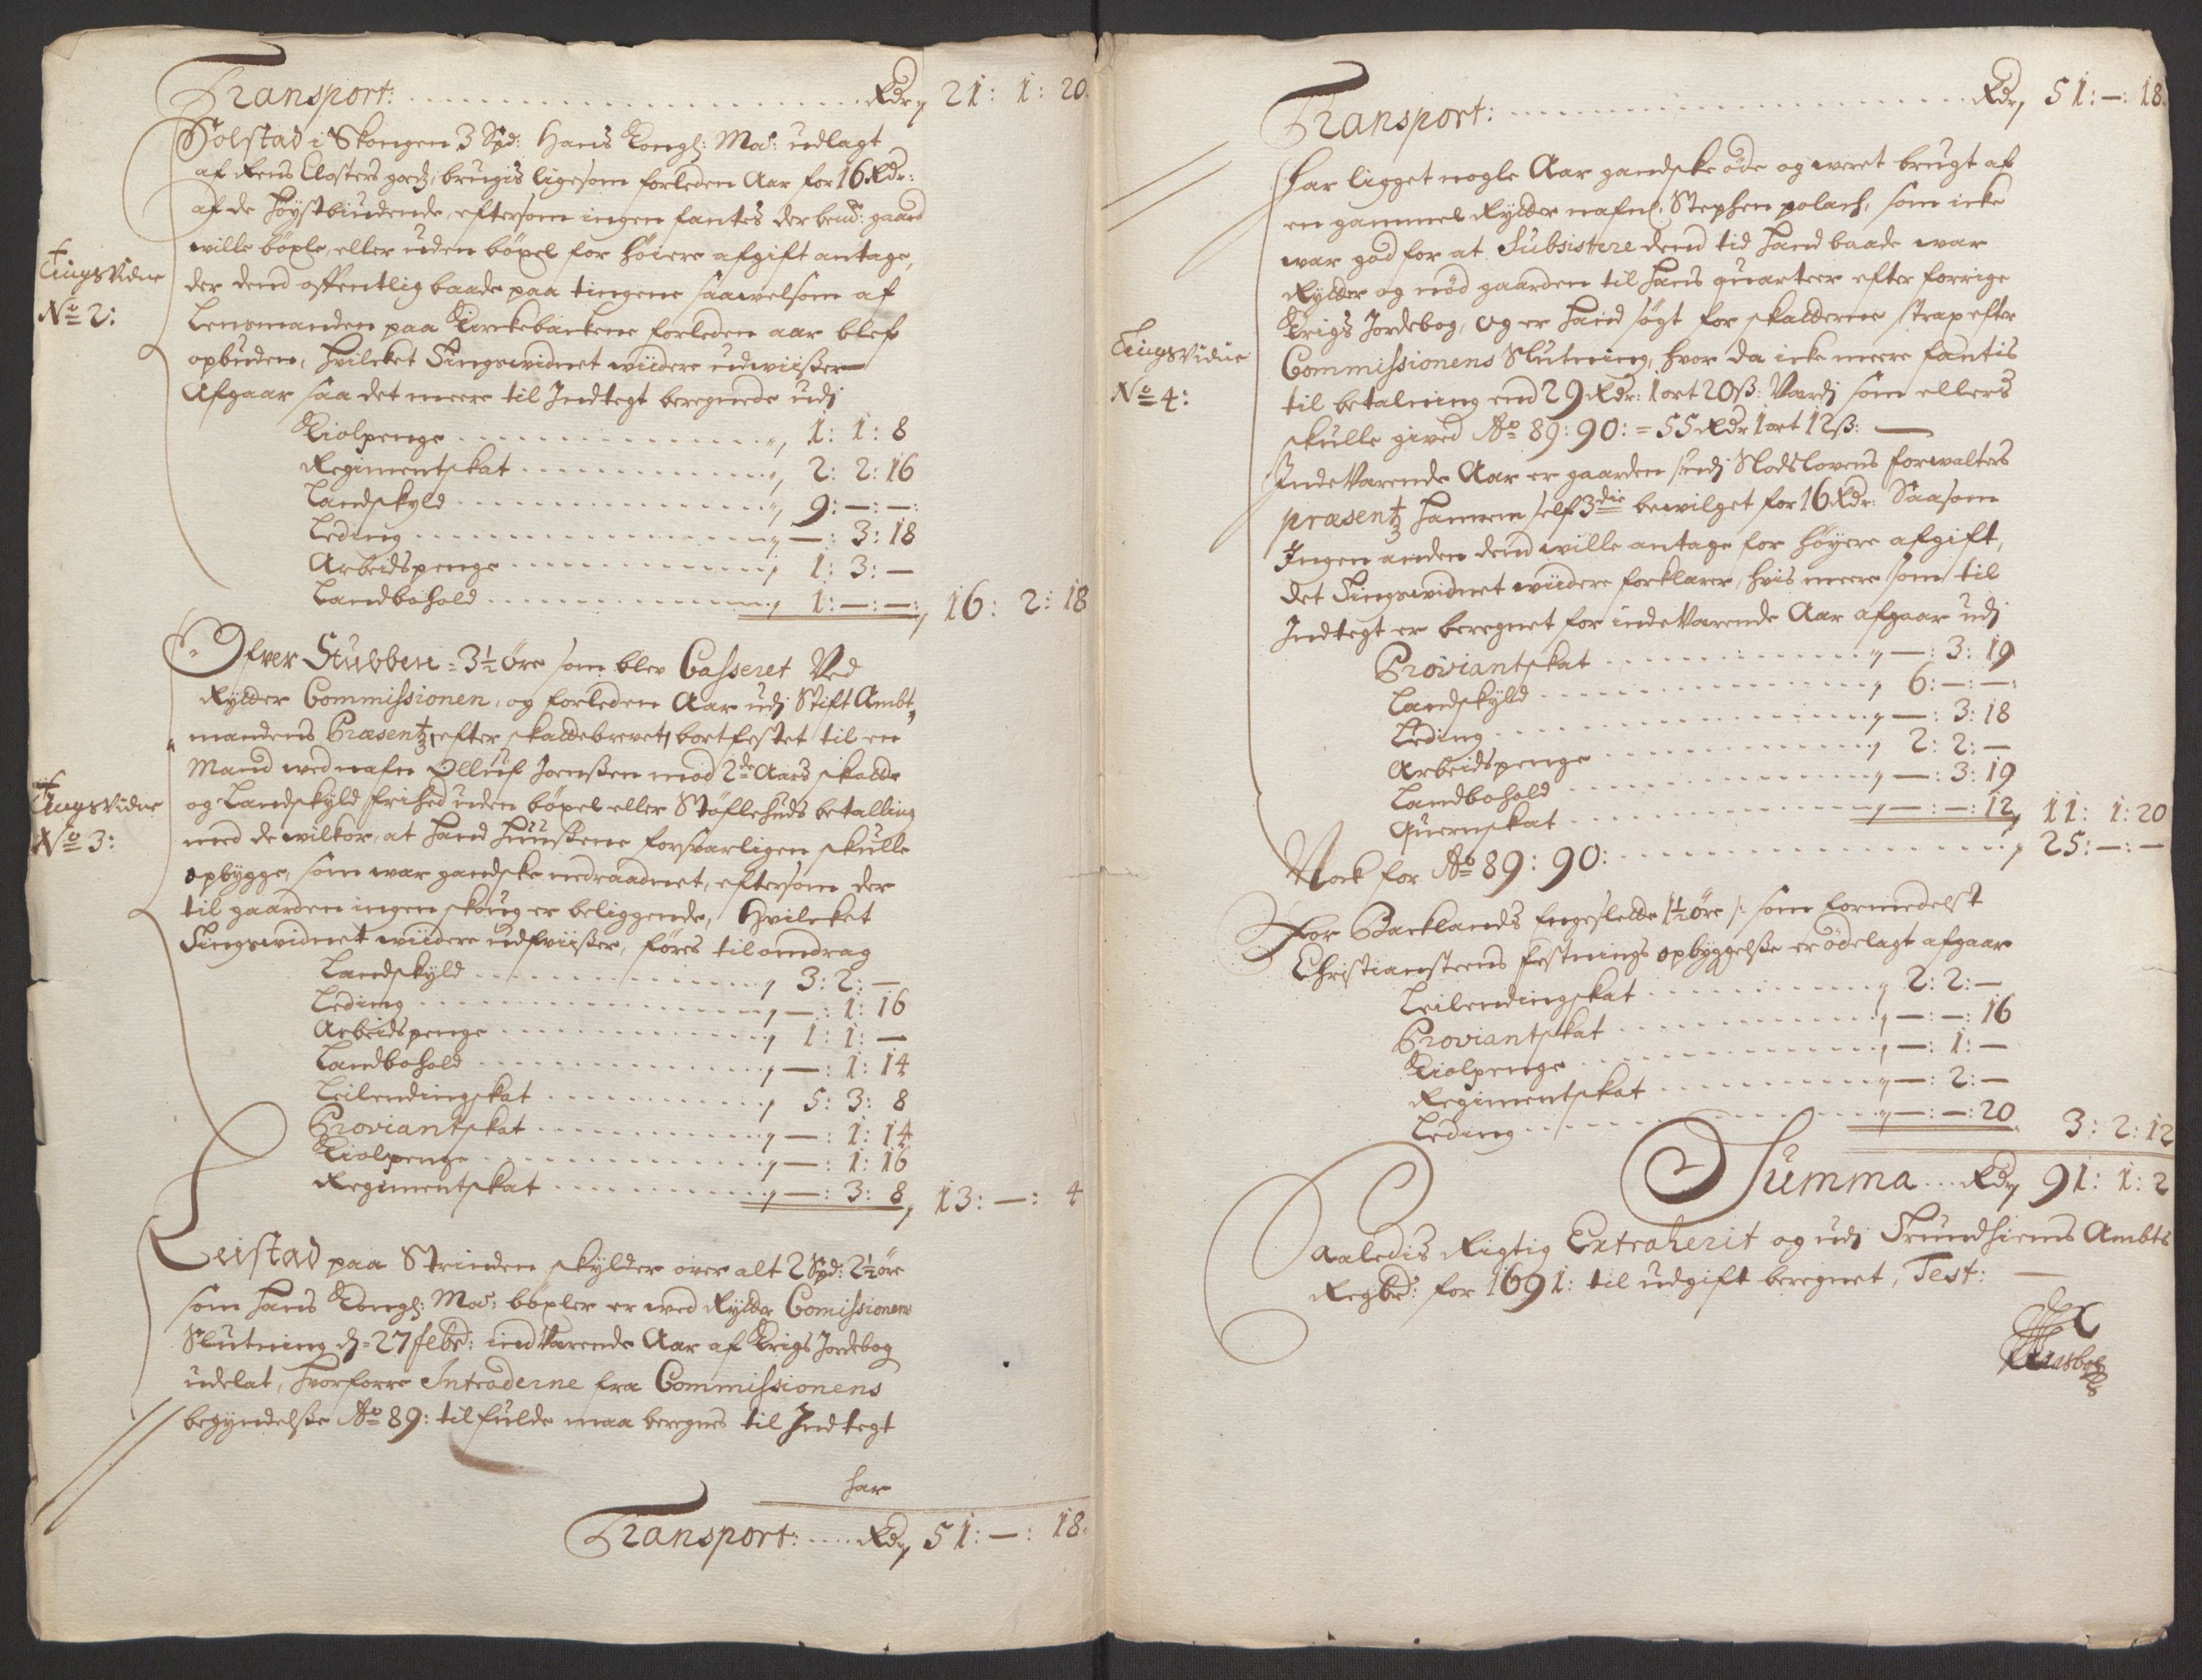 Transport: . . . . . . Rdr, 21: 1: 20.
Solstad i Skongen 3 Spd: Hans Kongl: Ma:ts udlagt
af Rens Closters godz, brugis ligesom forleden Aar for 16 Rdr:
af de höystbiudende, eftersom ingen fantes der bemt: gaard
wille böxle, eller uden böxel for höiere afgift antage,
TingsVidne
No 2:
der dend offentlig baade paa tingene saawelsom af
Lensmanden paa Kirckebackene forleden aar blef
opbuden, hvilcket Tingswidnet widere udwiisser
Afgaar saa det meere til Indtegt beregnede udj
Kiolpenge . . . . . , 1: 1: 8
Regimentskat . . . . . , 2: 2: 16
Landskyld . . . . . , 9: —: —:
Leding . . . . . , —: 3: 18
Arbeidspenge . . . . . , 1: 3: —
Landbohold . . . . . , 1: —: —:, 16: 2: 18
Ofver Stubben = 3½ öre som blev Casseret Ved
Rytter Commissionen, og forleden Aar udj Stift Ambt,,
mandens Præsentz, efter skattebrevet, bortfestet til en
Mand wed nafn Olluf Joenssen mod 2de Aars skatte
TingsVidne
No 3:
og Landskyld frihed uden böxel eller Stöflehuds betalling
med de wilkor, at hand Huussene forsvarligen skulle
opbygge, som war gandske nedraadnet, eftersom der
til gaarden ingen skoug er beliggende, Hvilcket
Tingswidnet widere udfviisser, föres til omdrag
Landskyld . . . . . , 3: 2: —
Leding . . . . . , —: 1: 16
Arbeidspenge . . . . . , 1: 1: —
Landbohold . . . . . , —: 1: 14
Leilendingskat . . . . . , 5: 3: 8
Proviantskat . . . . . , —: 1: 14
Kiolpenge . . . . . , —: 1: 16
Regimentskat . . . . . , —: 3: 8, 13: —: 4
Leistad paa Strinden skylder over alt 2 Spd: 2½ öre
som hans Kongl: Ma:ts böxler er wed Rytter Comissionens
Slutning d= 27 febr: indVarende Aar af Krigs Jordebog
udelat, hvorforre Intraderne fra Commissionens
begyndelsse Ao 89: til fulde maa beregnes til Indtegt
har
Transport: . . . . Rdr, 51: —: 18.
Transport: . . . . . . Rdr, 51: —: 18.
har ligget nogle Aar gandske öde og weret brugt af
en gammel Rytter nafnl: Stephen polach, som icke
war god for at Subsistere dend tid hand baade war
Rytter og nöd gaarden til hans quarteer efter forrige
TingsVidne
No 4:
Krigs Jordebog, og er hand sögt for skatterne strax efter
Commissionens Slutning, hvor da icke meere fantis
til betalning end 29 Rdr: 1 ort 20 ß: Værdj som ellers
skulle gived Ao 89: 90: = 55 Rdr 1 ort 12 ß: —
IndeVarende Aar er gaarden udj Slodslovens forwalters
præsentz hannem self 3die bewilget for 16 Rdr: Saasom
Ingen anden dend wille antage for höyere afgift,
det Tingswidnet widere forklarer, hvis meere som til
Indtegt er beregnet for indeVarende Aar afgaar udj
Proviantskat . . . . . , —: 3: 19
Landskyld . . . . . , 6: —: —:
Leding . . . . . , —: 3: 18
Arbeidspenge . . . . . , 2: 2: —
Landbohold . . . . . , —: 3: 19
Quernskat . . . . . , —: —: 12, 11: 1: 20
Nock for Ao 89: 90: . . . . . , 25: —: —
For Backlands Engeslette 1½ öre /: som formedelst
Christiansteens festnings opbyggelsse er ödelagt afgaar
Leilendingskat . . . . . , 2: 2: —
Proviantskat . . . . . , —: —: 16
Kiolpenge . . . . . , —: 1: —
Regimentskat . . . . . , —: 2: —
Leding . . . . . , —: —: 20. 3: 2: 12
Summa . . . Rdr, 91: 1: 2
Saaledis Rigtig Extraherit og udj Trundhiems Ambts
Regbr: for 1691: til udgift beregnet, Test: —